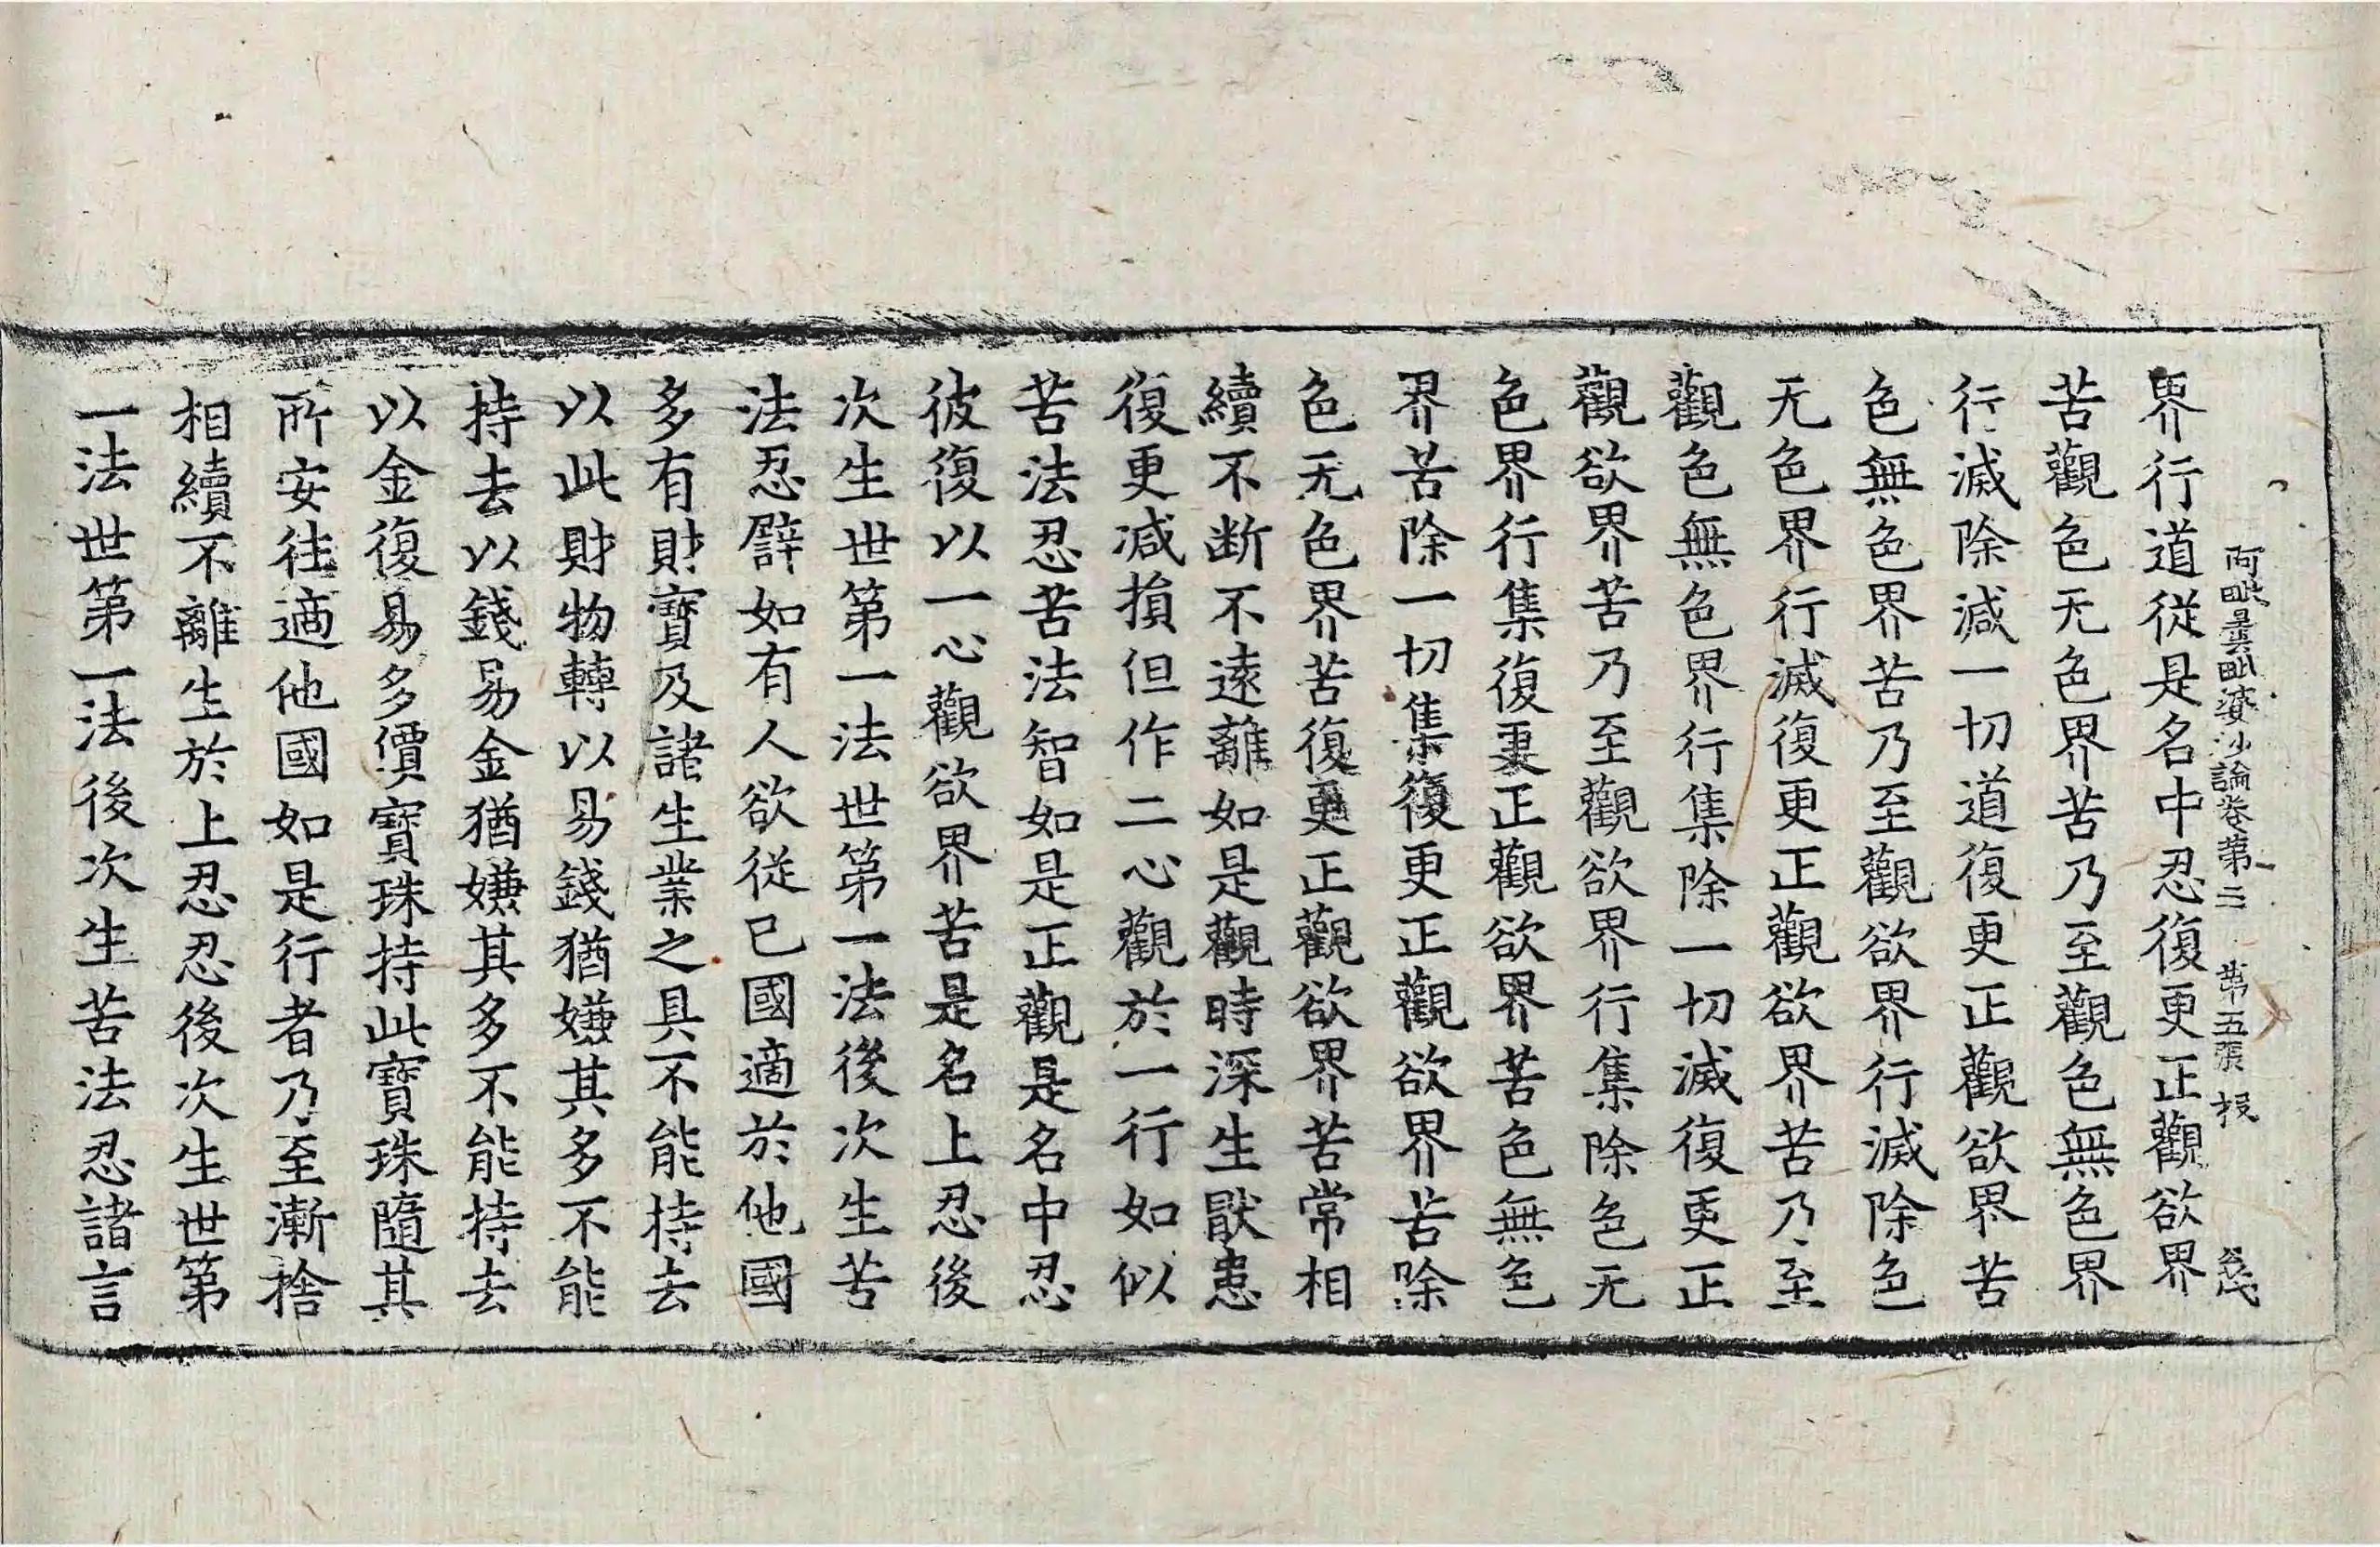 阿毗曇毗婆沙論卷第二 第五張 投
界行道從是名中忍復更正觀欲界
苦觀色无色界苦乃至觀色無色界
行滅除減一切道復更正觀欲界苦
色無色界苦乃至觀欲界行滅除色
无色界行滅復更正觀欲界苦乃至
觀色無色界行集除一切滅復更正
觀欲界苦乃至觀欲界行集除色无
色界行集復更正觀欲界苦色無色
界苦除一切集復更正觀欲界苦除
色无色界苦復更正觀欲界苦常相
續不断不遠離如是觀時深生猒患
復更減損但作二心觀於一行如似
苦法忍苦法智如是正觀是名中忍
彼復以一心觀欲界苦是名上忍後
次生世第一法世第一法後次生苦
法忍譬如有人欲從已國適於他國
多有財寶及諸生業之具不能持去
以此財物轉以易錢猶嫌其多不能
持去以錢易金猶嫌其多不能持去
以金復易多價寶珠持此寶珠隨其
所安往適他國如是行者乃至漸捨
相續不離生於上忍忍後次生世第
一法世第一法後次生苦法忍諸言